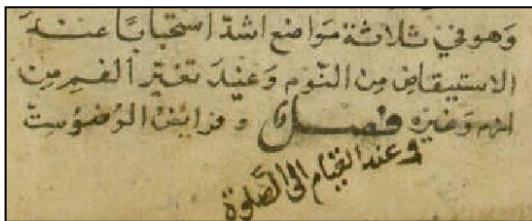 وهو في ثلاثة مواضع اشدّ استحبابًا عند
الاستيقاض من النّوم وعند تغيّر الفم من
ازم وغيره فصل وفرايض الوضوء ستّ
وعند القيام الى الصّلوة